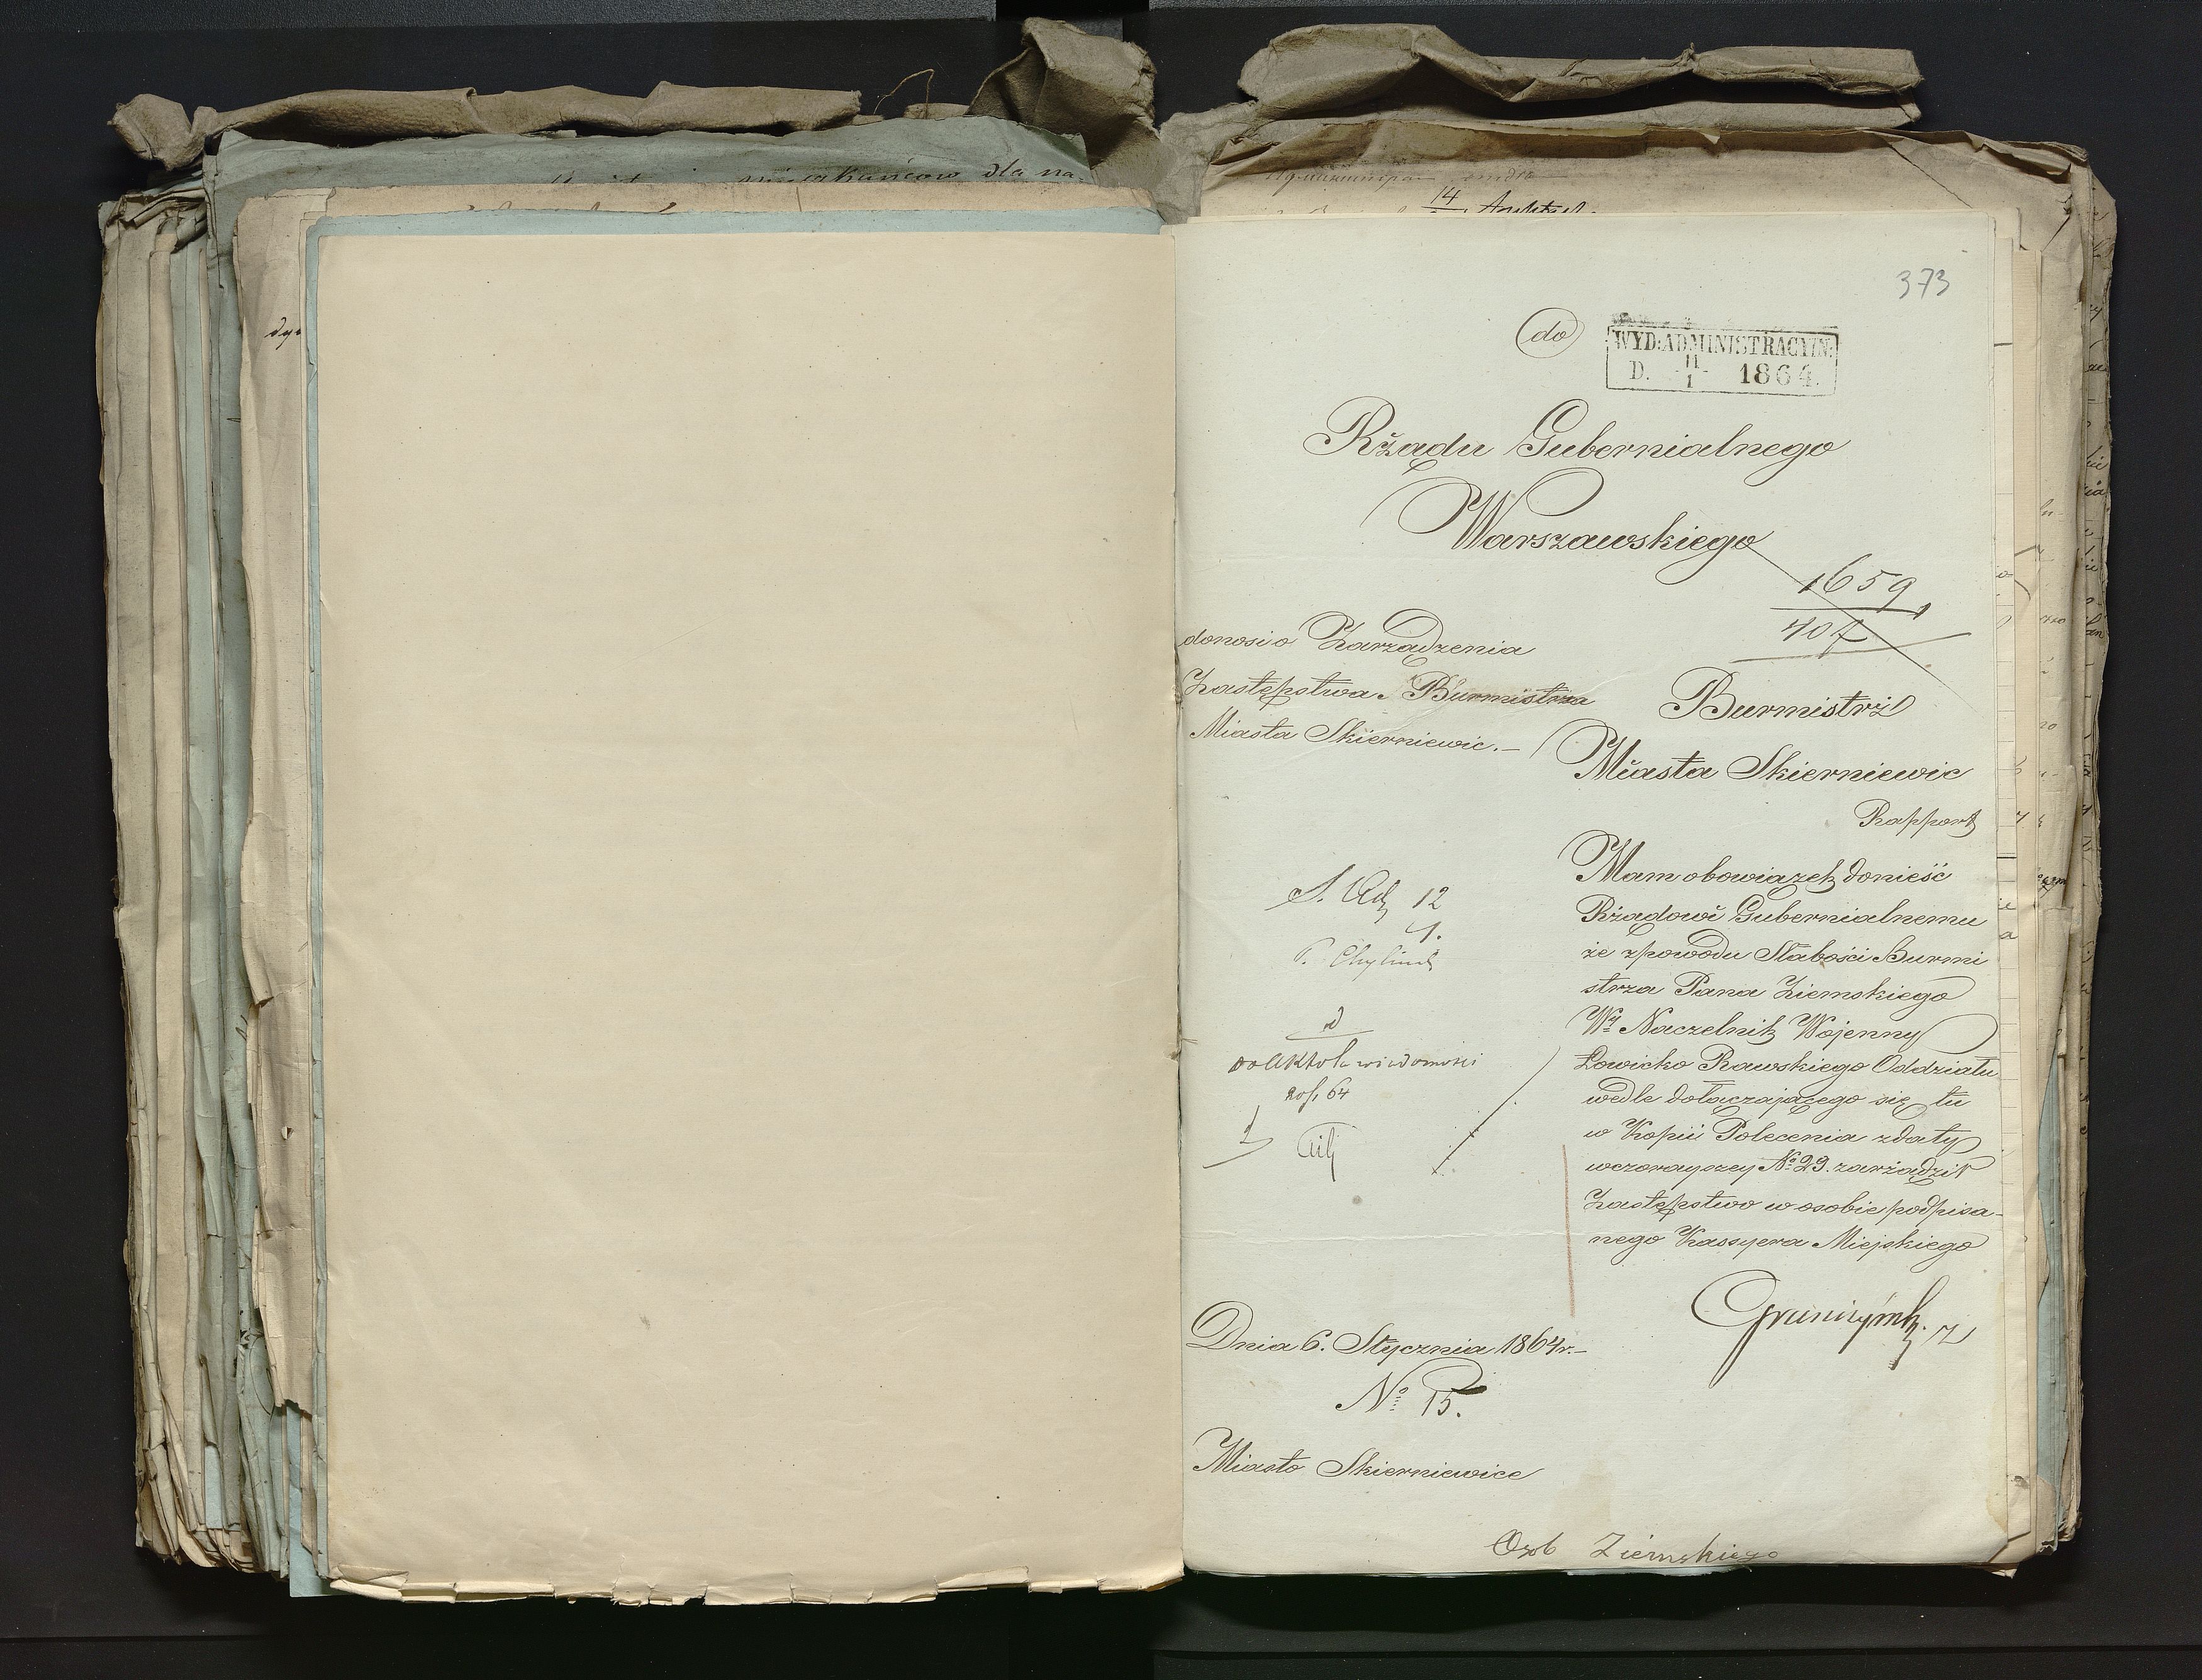 373
do
WYD: ADMINISTRACYJN:
D. 11/1 1864.
Rządu Gubernialnego
Warszawskiego
1659
407
donosi o Zarządzenia
Zastępstwa Burmistrza
Miasta Skierniewic.—
Burmistrz
Miasta Skierniewic
Rapport
Mam obowiązek donieść
Rządowi Gubernialnemu
że z powodu Słabości Burmi
strza Pana Ziemskiego
Wy Naczelnik Wojenny
Łowicko Rawskiego Oddziału
wedle dołączającego się tu
w Kopii Polecenia z daty
wczorayszey No 29. zarządził
Zastępstwo w osobie podpisa-
nego Kassyera Miejskiego
12
1.
do Akt wiadomości
64
Dnia 6. Stycznia 1864 r.—
No 15.
Miasto Skierniewice
Osob Ziemskiego
dla na-
14